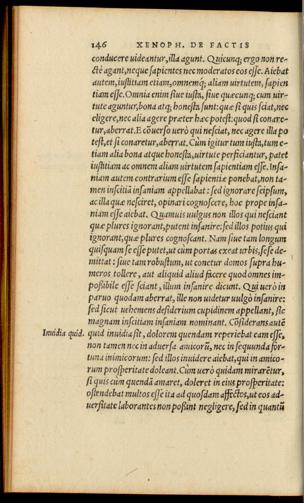 146 XENOPH. DE FACTIS
conducere uideantur, illa agunt. Quicunq; ergo non re-
ctè agant, neque sapientes nec moderatos eos esse. Aiebat
autem, iustitiam etiam, omnemq; aliam uirtutem, sapien
tiam esse. Omnia enim siue iusta, siue quæcunq; cum uir-
tute aguntur, bona atq; honesta sunt: quæ si quis sciat, nec
eligere, nec alia agere præter hæc potest: quod si conare-
tur, aberrat. E cōuerso uerò qui nesciat, nec agere illa po
test, et si conaretur, aberrat. Cùm igitur tum iusta, tum e-
tiam alia bona atque honesta, uirtute perficiantur, patet
iustitiam ac omnem aliam uirtutem sapientiam esse. Insa-
niam autem contrarium esse sapientiæ ponebat, non ta-
men inscitiā insaniam appellabat: sed ignorare seipsum,
ac illa quæ nesciret, opinari cognoscere, hoc prope insa-
niam esse aiebat. Quamuis uulgus non illos qui nesciant
quæ plures ignorant, putent insanire: sed illos potius qui
ignorant, quæ plures cognoscant. Nam siue tam longum
quispiam se esse putet, ut cùm portas excat urbis, sese de-
mittat: siue tam robustum, ut conetur domos supra hu-
meros tollere, aut aliquid aliud facere quod omnes im-
possibile esse sciant, illum insanire dicunt. Qui uerò in
paruo quodam aberrat, ille non uidetur uulgò insanire:
sed sicut uehemens desiderium cupidinem appellant, sic
magnam inscitiam insaniam nominant. Cōsiderans autē
Inuidia quid. quid inuidia sit, dolorem quendam reperiebat eam esse,
non tamen nec in aduersa amicorū, nec in sequunda for-
tuna inimicorum: sed illos inuidere aiebat, qui in amico-
rum prosperitate doleant. Cùm uerò quidam mirarētur,
si quis cum quendā amaret, doleret in eius prosperitate:
ostendebat multos esse ita ad quosdam affectos, ut eos ad-
uersitate laborantes non possint negligere, sed in quantū